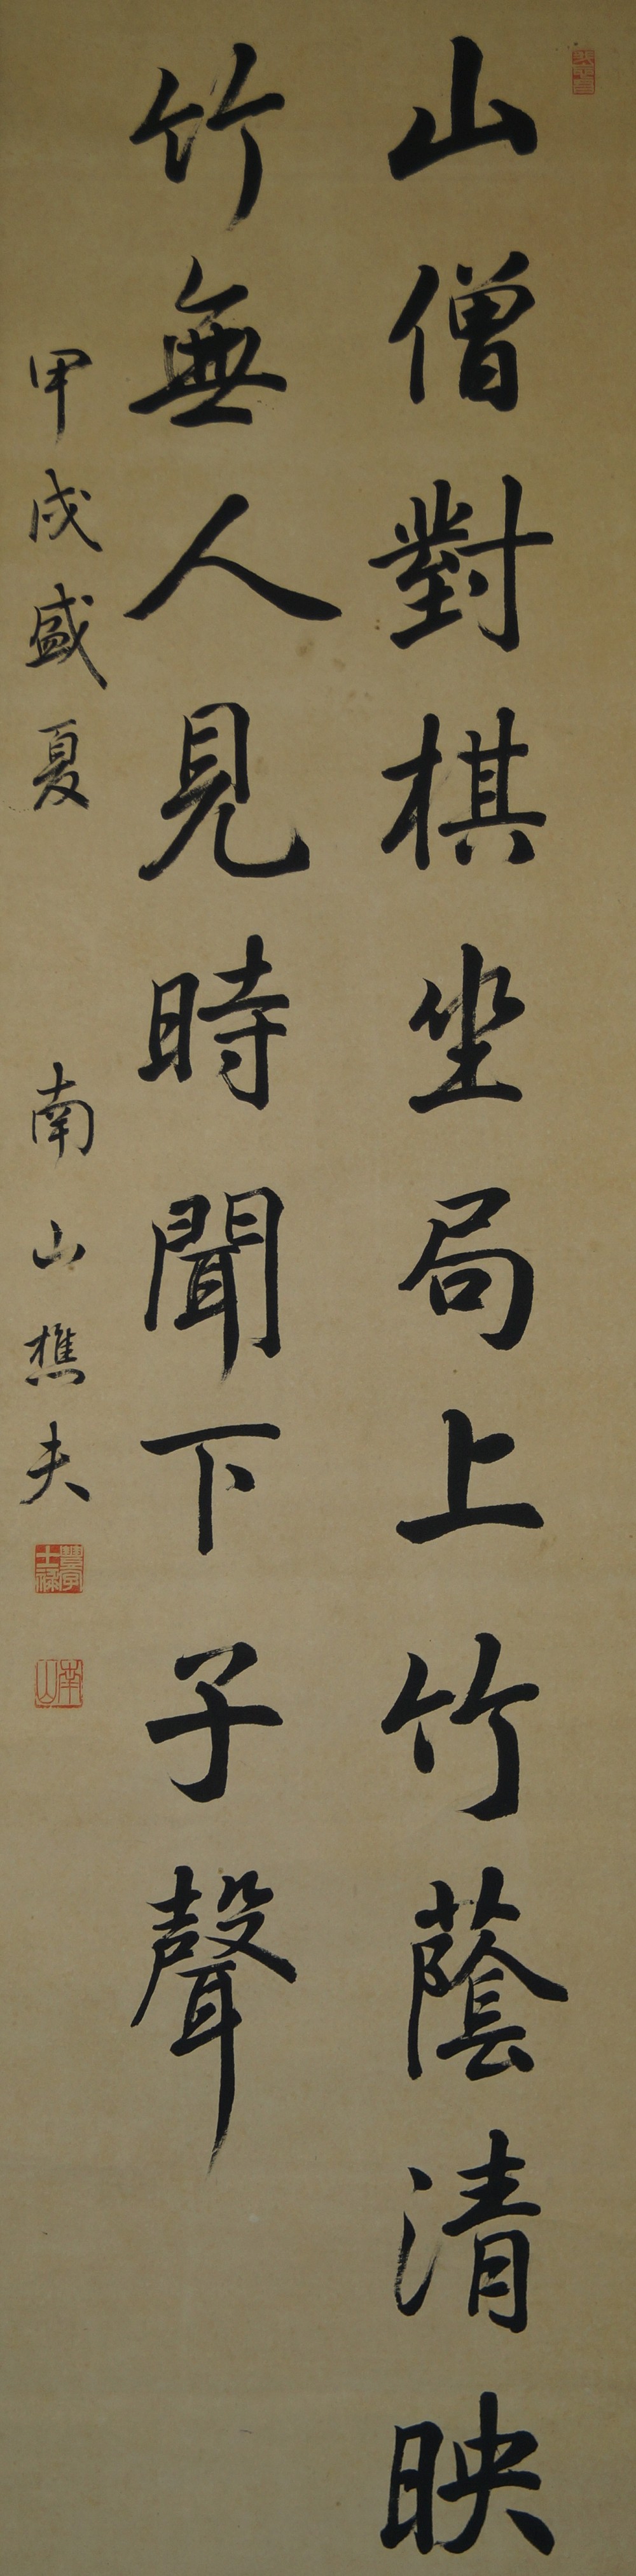 山僧對棋坐局上竹蔭清映
竹無人見時聞下子聲
甲戌盛夏　南山樵夫
南山